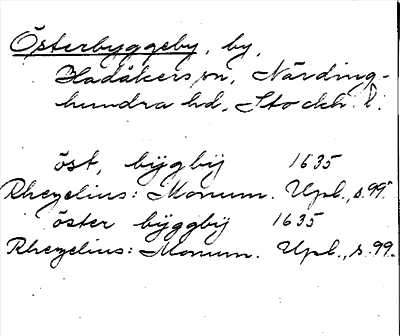 Österbyggeby, by,
Hadåkers sn, Närding-
hundra hd, Stockh. l.
öst, bÿgbij 1635
Rhezelius: Monum. Upl., s. 99.
öster bÿggbij 1635
Rhezelius: Monum. Upl., s. 99.